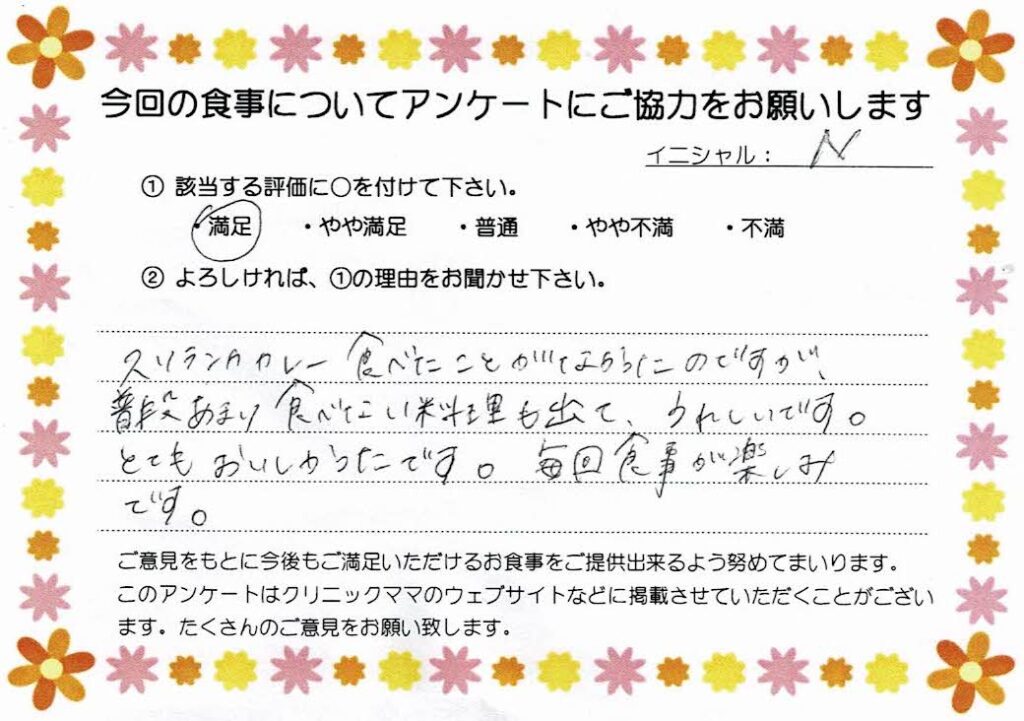 今回の食事についてアンケートにご協力をお願いします
イニシャル： N
① 該当する評価に○を付けて下さい。
・満足 ・やや満足 ・普通 ・やや不満 ・不満
② よろしければ、①の理由をお聞かせ下さい。
スリランカカレー食べたことがなかったのですが、
普段あまり食べない料理も出て、うれしいです。
とてもおいしかったです。毎回食事が楽しみ
です。
ご意見をもとに今後もご満足いただけるお食事をご提供出来るよう努めてまいります。
このアンケートはクリニックママのウェブサイトなどに掲載させていただくことがござい
ます。たくさんのご意見をお願い致します。